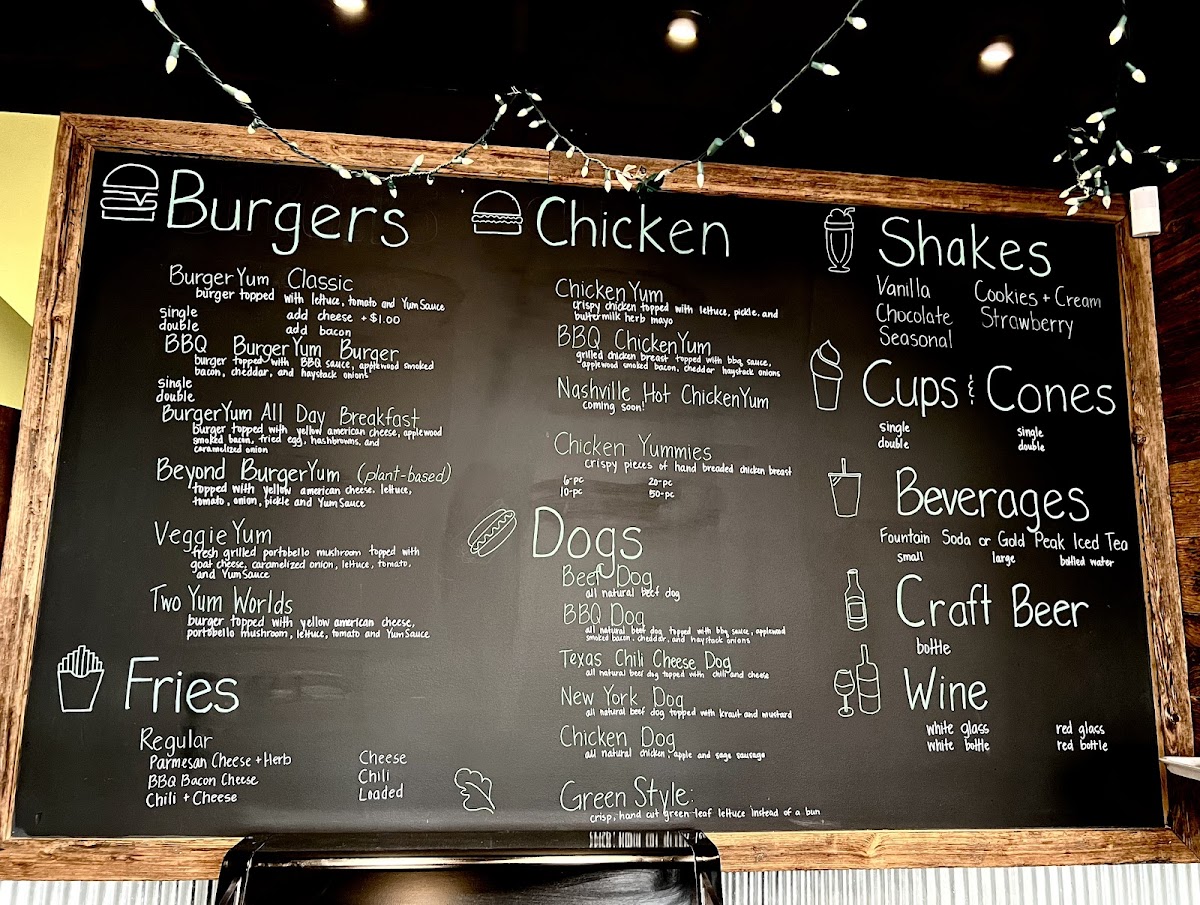 Burgers
BurgerYum Classic
burger topped with lettuce, tomato and YumSauce
single add cheese +$1.00
double add bacon
BBQ BurgerYum Burger
burger topped with BBQ sauce, applewood smoked
bacon, cheddar, and haystack onions
single
double
BurgerYum All Day Breakfast
burger topped with yellow american cheese, applewood
smoked bacon, fried egg, hashbrowns, and
caramelized onion
Beyond BurgerYum (plant-based)
topped with yellow american cheese, lettuce,
tomato, onion, pickle and YumSauce
VeggieYum
fresh grilled portobello mushroom topped with
goat cheese, caramelized onion, lettuce, tomato,
and YumSauce
Two Yum Worlds
burger topped with yellow american cheese,
portobello mushroom, lettuce, tomato and YumSauce
Fries
Regular
Parmesan Cheese + Herb Cheese
BBQ Bacon Cheese Chili
Chili + Cheese Loaded
Chicken
ChickenYum
crispy chicken topped with lettuce, pickle, and
buttermilk herb mayo
BBQ ChickenYum
grilled chicken breast topped with bbq sauce,
applewood smoked bacon, cheddar haystack onions
Nashville Hot ChickenYum
coming soon!
Chicken Yummies
crispy pieces of hand breaded chicken breast
6-pc 20-pc
10-pc 50-pc
Dogs
Beef Dog
all natural beef dog
BBQ Dog
all natural beef dog topped with bbq sauce, applewood
smoked bacon, cheddar, and haystack onions
Texas Chili Cheese Dog
all natural beef dog topped with chili and cheese
New York Dog
all natural beef dog topped with kraut and mustard
Chicken Dog
all natural chicken, apple and sage sausage
Green Style:
crisp, hand cut green leaf lettuce instead of a bun
Shakes
Vanilla Cookies + Cream
Chocolate Strawberry
Seasonal
Cups & Cones
single single
double double
Beverages
Fountain Soda or Gold Peak Iced Tea
small large bottled water
Craft Beer
bottle
Wine
white glass red glass
white bottle red bottle